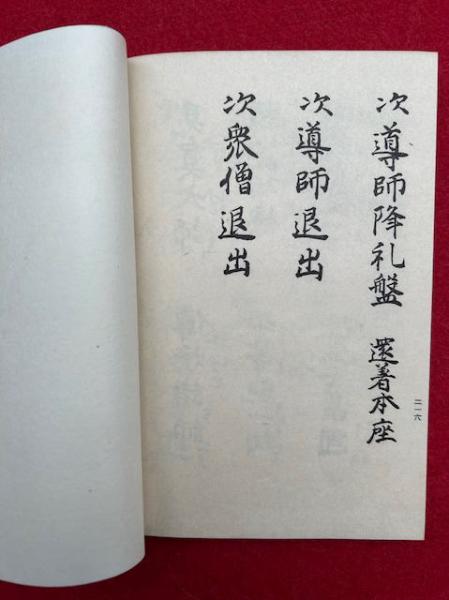 次導師降礼盤 還着本座
次導師退出
次衆僧退出
二一六